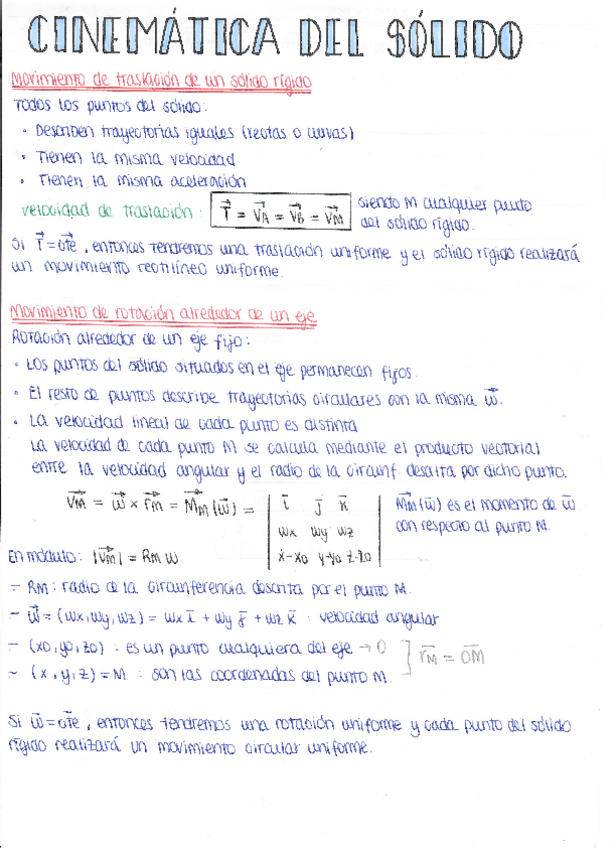 CINEMÁTICA DEL SÓLIDO
Movimiento de traslación de un sólido rígido
Todos los puntos del sólido:
• Describen trayectorias iguales (rectas o curvas)
• Tienen la misma velocidad
• Tienen la misma aceleración
velocidad de traslación: T⃗ = V⃗A = V⃗B = V⃗M siendo M cualquier punto
del sólido rígido.
Si T⃗ = cte⃗, entonces tendremos una traslación uniforme y el sólido rígido realizará
un movimiento rectilíneo uniforme.
Movimiento de rotación alrededor de un eje
Rotación alrededor de un eje fijo:
• Los puntos del sólido situados en el eje permanecen fijos.
• El resto de puntos describe trayectorias circulares con la misma w⃗.
• La velocidad lineal de cada punto es distinta
La velocidad de cada punto M se calcula mediante el producto vectorial
entre la velocidad angular y el radio de la circunf. descrita por dicho punto.
V⃗M = w⃗ x r⃗M = M⃗M (w⃗) = | i̅ j̅ k̅ | M̅M (w̅) es el momento de w̅
| wx wy wz | con respecto al punto M.
| x-x0 y-y0 z-z0 |
En módulo: |V⃗M| = RM w
- RM: radio de la circunferencia descrita por el punto M.
- w⃗ = (wx, wy, wz) = wx i̅ + wy j̅ + wz k̅ : velocidad angular
- (x0, y0, z0) : es un punto cualquiera del eje → O
- (x, y, z) = M : son las coordenadas del punto M. ] r̅M = O̅M̅
Si w̅ = cte⃗, entonces tendremos una rotación uniforme y cada punto del sólido
rígido realizará un movimiento circular uniforme.